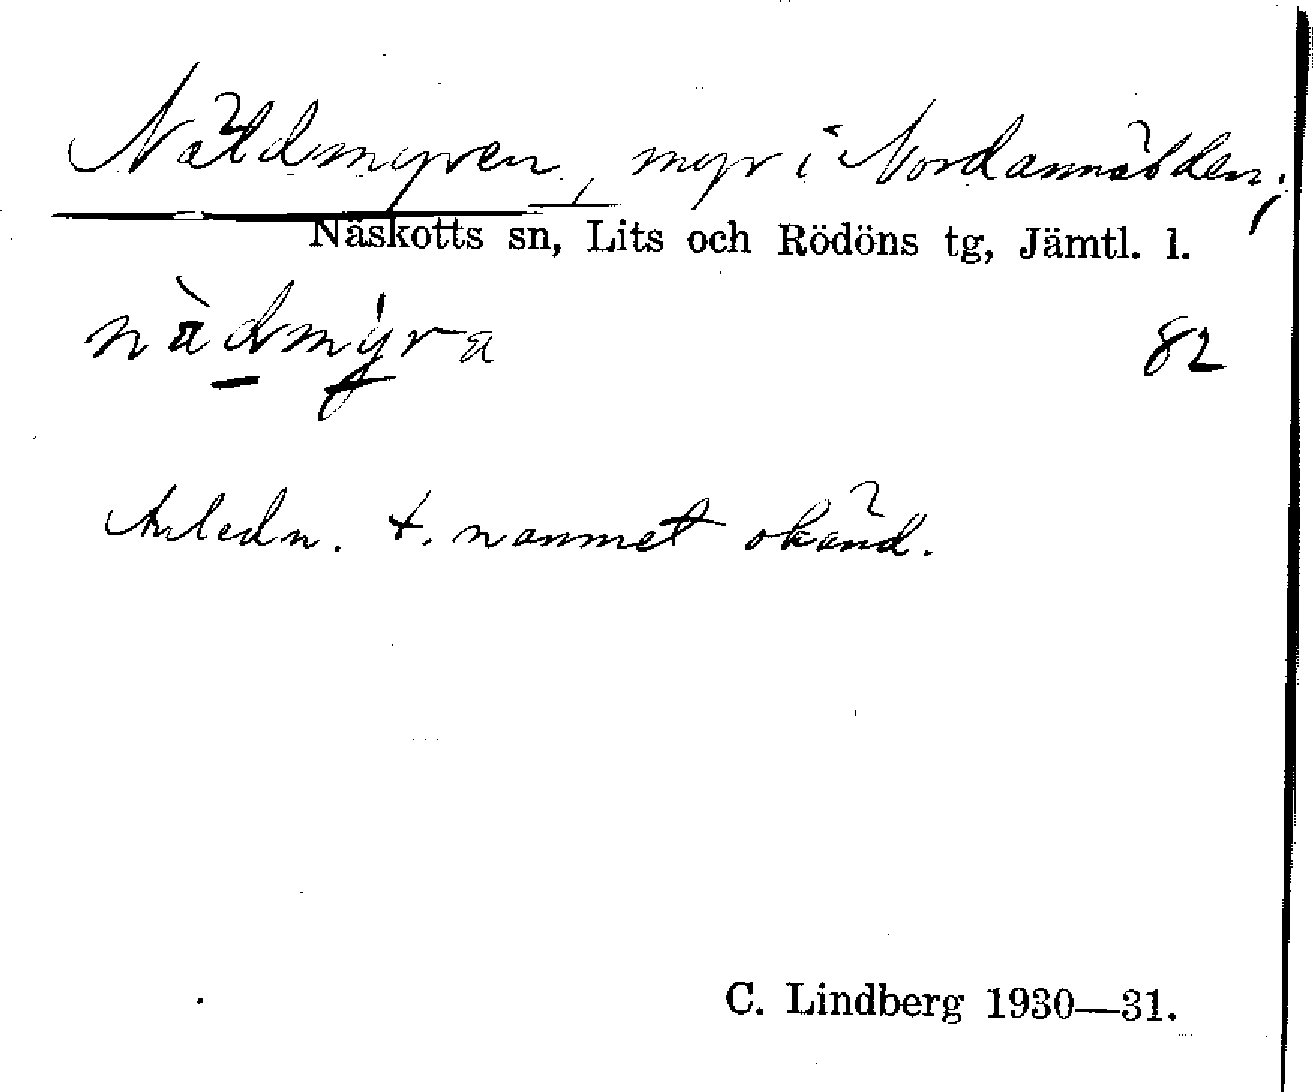 Näldmyren, myr i Nordannälden,
Näskotts sn, Lits och Rödöns tg, Jämtl. l.
nàdmy̍ra 82
Anledn. t. namnet okänd.
C. Lindberg 1930—31.